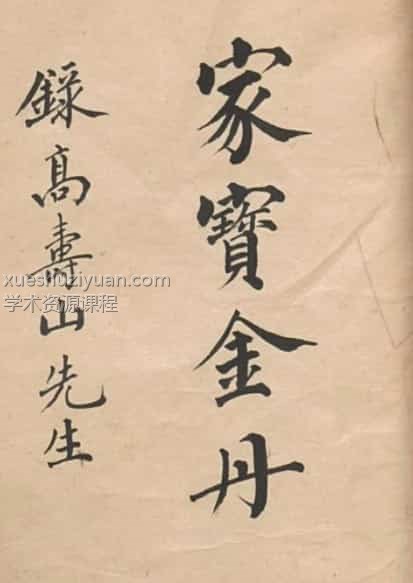 家寳金丹
錄髙壽山先生
xueshuziyuan.com
学术资源课程